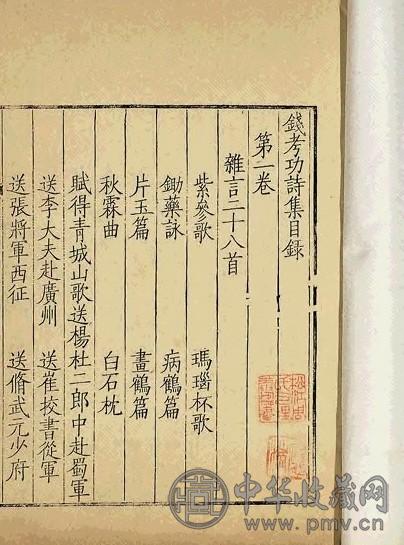 錢考功詩集目錄
第一卷
雜言二十八首
紫參歌 瑪瑙杯歌
鋤藥詠 病鶴篇
片玉篇 畫鶴篇
秋霖曲 白石枕
賦得青城山歌送楊杜二郎中赴蜀軍
送李大夫赴廣州 送崔校書從軍
送張將軍西征 送脩武元少府
中华收藏网
www.pmv.cn